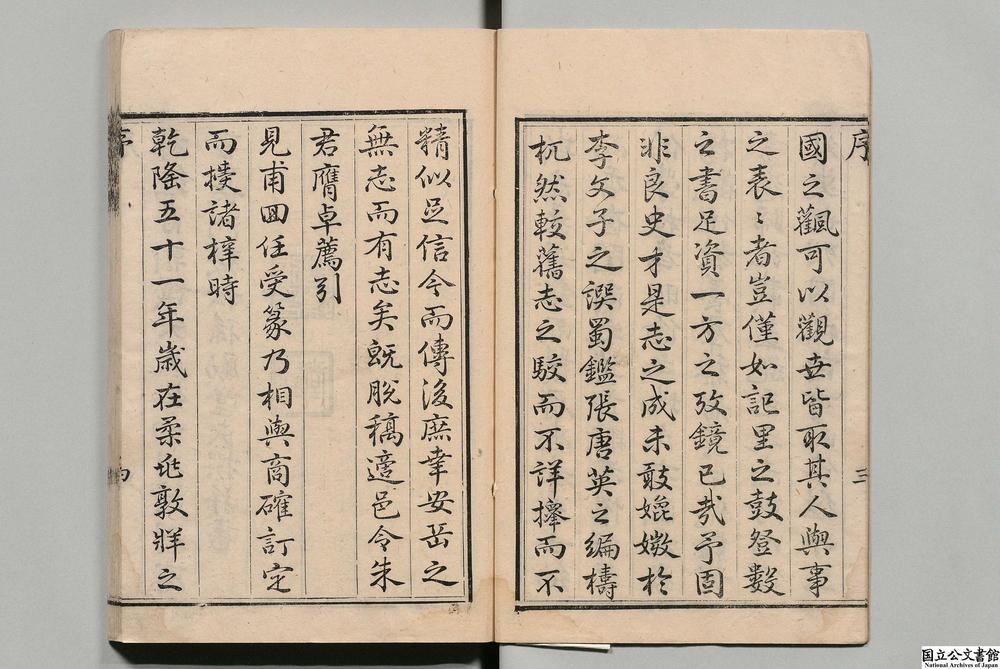 序 三
國之觀可以觀世皆取其人與事
之表〻者豈僅如記里之鼓登數
之書足資一方之攷鏡已哉予固
非良史才是志之成未敢媲媺於
李文子之譔蜀鑑張唐英之編檮
杌然較舊志之駮而不詳擇而不
精似足信今而傳後庶幸安岳之
無志而有志矣既脫稿適邑令朱
君膺卓薦引
見甫回任受篆乃相與商確訂定
而授諸梓時
乾隆五十一年歲在柔兆敦牂之
序
国立公文書館
National Archives of Japan